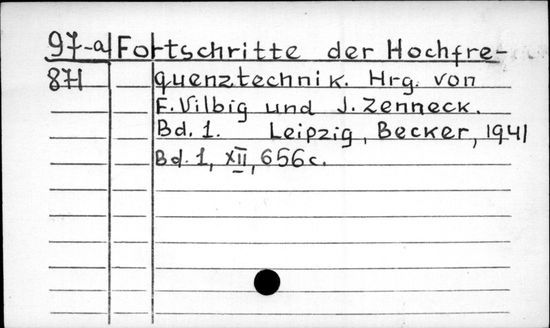 97-a Fortschritte der Hochfre-
871 quenztechnik. Hrg. von
F. Vilbig und J. Zenneck.
Bd. 1. Leipzig, Becker, 1941
Bd. 1, XII, 656 c.